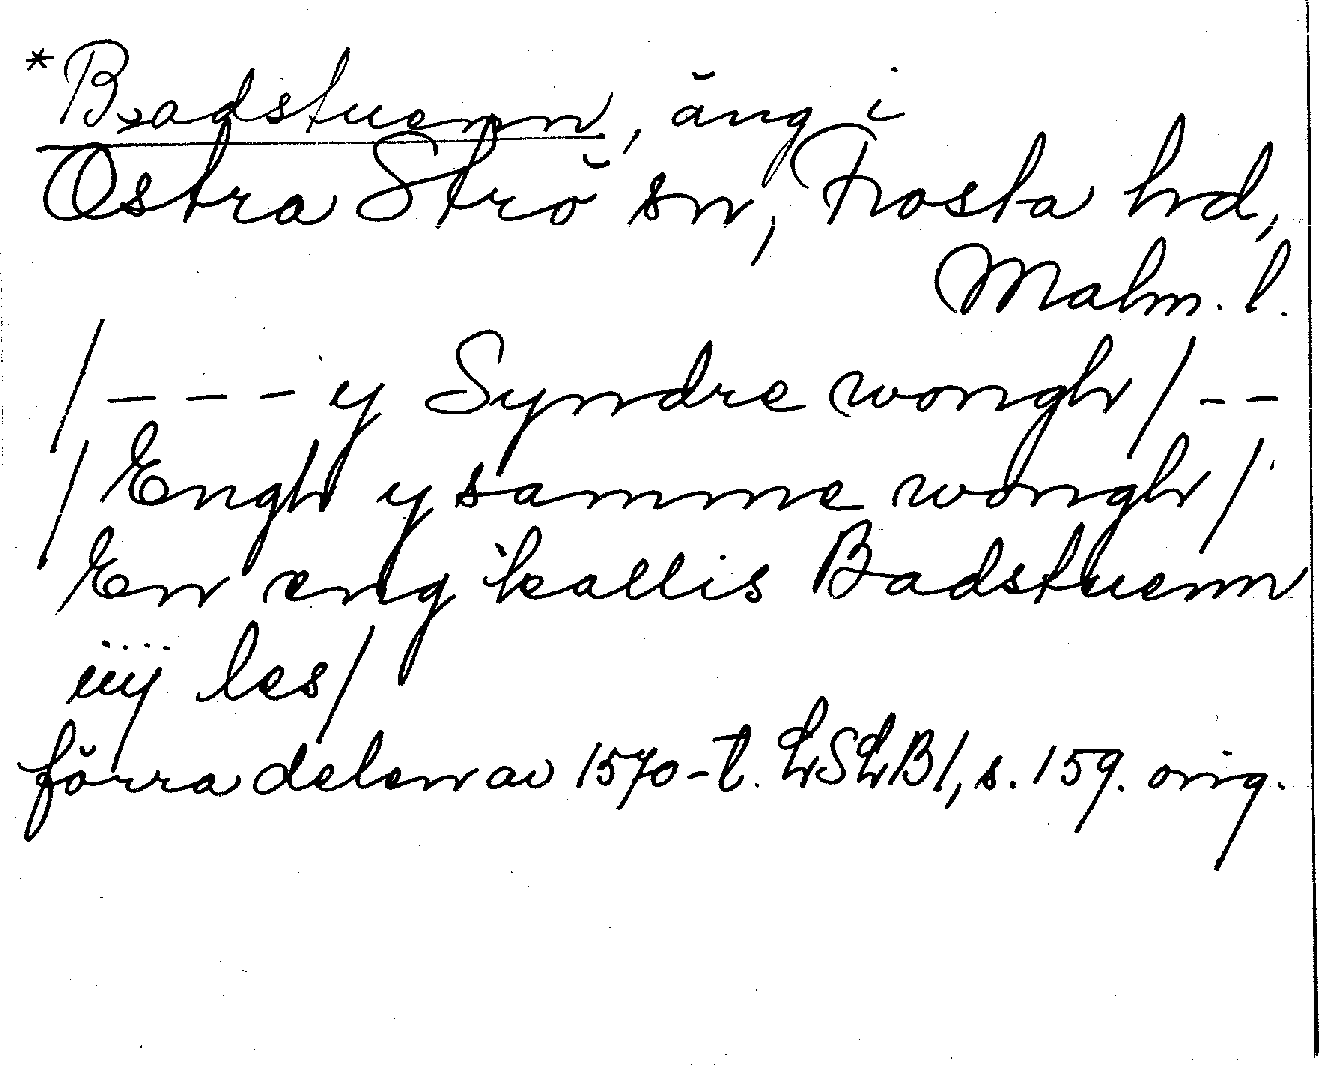 *Badstuenn, äng i
Östra Strö sn, Frosta hd,
Malm. l.
/ - - - y Syndre wongh / - -
/ Engh y samme wongh /
En eng kallis Badstuenn
iiij les /
förra delen av 1570-t. LSLB1, s. 159. orig.